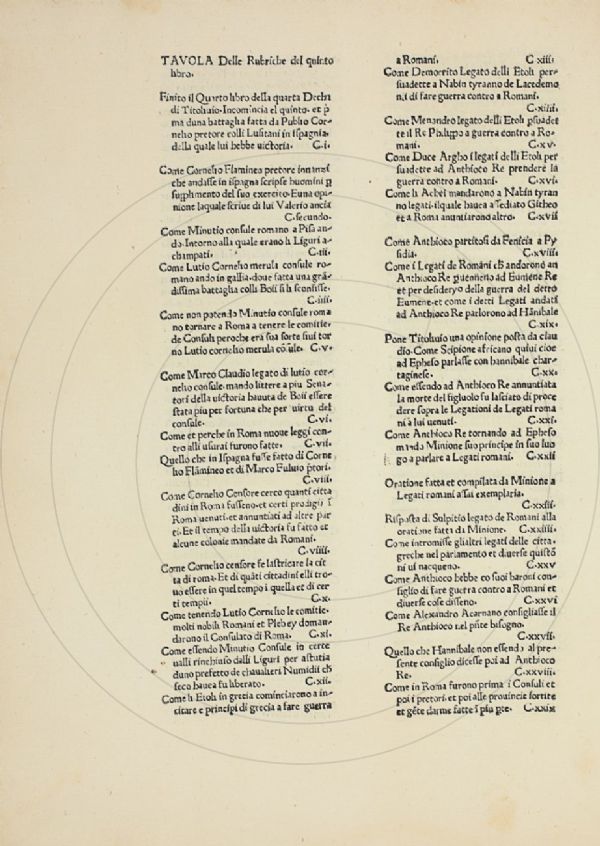 TAVOLA Delle Rubriche del quinto
libro.
Finito il Quarto libro della quarta Decha
di Titoliuio. Incomincia el quinto. et p̄
ma duna battaglia fatta da Publio Cor⸗
nelio pretore colli Lusitani in Ispagnia
della quale lui hebbe uictoria. C.i.
Come Cornelio Flaminea pretore innanzi
che andasse in ispagna scripse huomini p
supplimento del suo exercito. Euna opi⸗
nione laquale scriue di lui Valerio ancia
C.secundo.
Come Minutio consule romano a Pisa an⸗
do. Intorno alla quale erano li Liguri a⸗
champati. C.iii.
Come Lutio Cornelio merula consule ro⸗
mano ando in gallia. doue fatta una grā⸗
dissima battaglia colli Boii si li sconfisse.
C.iiii.
Come non potendo Minutio consule roma
no tornare a Roma a tenere le comitie.
de Consuli peroche era sua sorte fu i tor
no Lutio cornelio merula cōsule. C.v.
Come Marco Claudio legato di lutio cor⸗
nelio consule. mando littere a piu Sena⸗
tori della uictoria hauuta de Boii essere
stata piu per fortuna che per uirtu del
consule. C.vi.
Come et perche in Roma nuoue leggi con⸗
tro alli usurai furono fatte. C.vii.
Quello che in Ispagna fusse fatto di Corne
lio Flāmineo et di Marco Fuluio p̄tori.
C.viii.
Come Cornelio Censore cerco quanti citta
dini in Roma fusseno. et certi prodigii ī
Roma uenuti. et annuntiati ad altre par
ti. Et il tempo della uictoria fu fatto et
alcune colonie mandate da Romani.
C.viiii.
Come Cornelio censore fe lastricare la cit
ta di roma. Et di quāti cittadini elli tro⸗
uo essere in quel tempo i quella et di cer
ti tempii. C.x.
Come tenendo Lutio Cornelio le comitie.
molti nobili Romani et Plebey doman⸗
darono il Consulato di Roma. C.xi.
Come essendo Minutio Consule in certe
ualli rinchiuso dalli Liguri per astutia
duno prefetto de chaualieri Numidii ch
seco haua fu liberato. C.xii.
Come li Etoli in grecia cominciarono a in⸗
citare e principi di grecia a fare guerra
a Romani. C xiii.
Come Demorrito Legato delli Etoli per⸗
suadette a Nabin tyranno de Lacedemo
nii di fare guerra contro a Romani.
C.xiiii.
Come Menandro legato delli Etoli p̄suadet
te il Re Philippo a guerra contro a Ro⸗
mani. C.xv.
Come Duce Argho i legati delli Etoli per
suadetre ad Anthioco Re prendere la
guerra contro a Romani. C.xvi.
Come li Achei mandarono a Nabin tyran
no legati. ilquale hauea assediato Githeo
et a Roma anuntiarono altro. C.xvii
Come Anthioco partitosi da Fenicia a Py
sidia. C.xviii.
Come i Legati de Romāni ch andorono an
Anthioco Re guenerno ad Eumene Re
et per desiderio della guerra del detto
Eumene. et come i detti Legati andati
ad Anthioco Re parlorono ad Hānibale
C.xix.
Pone Titoliuio una opinione posta da clau
dio. Come Scipione africano quiui cioe
ad Epheso parlasse con hannibale char⸗
taginese. C.xx.
Come essendo ad Anthioco Re annuntiata
la morte del figluolo fu lasciato di proce
dere sopra le Legationi de Legati roma
ni a lui uenuti. C.xxi.
Come Anthioco Re tornando ad Epheso
mando Minione suo principe in suo luo
go a parlare a Legati romani. C.xxii
Oratione fatta et compilata da Minione a
Legati romani assai exemplaria.
C.xxiii.
Risposta di Sulpitio legato de Romani alla
oratione fatta da Minione. C.xxiiii.
Come intromisse glialtri legati delle citta.
greche nel parlamento et diuerse quistiō
ni ui nacqueno. C.xxv
Come Anthioco hebbe co suoi baroni con⸗
siglio di fare guerra contro a Romani et
diuerse cose disseno. C.xxvi
Come Alexandro Acarnano consigliasse il
Re Anthioco nel p̄sēte bisogno.
C.xxvii.
Quello che Hannibale non essendo al pre⸗
sente consiglio dicesse poi ad Anthioco
Re. C.xxviii.
Come in Roma furono prima i Consuli et
poi i pretori. et poi alle prouincie sortite
et gēte darme fatte ī piu pte. C.xxix